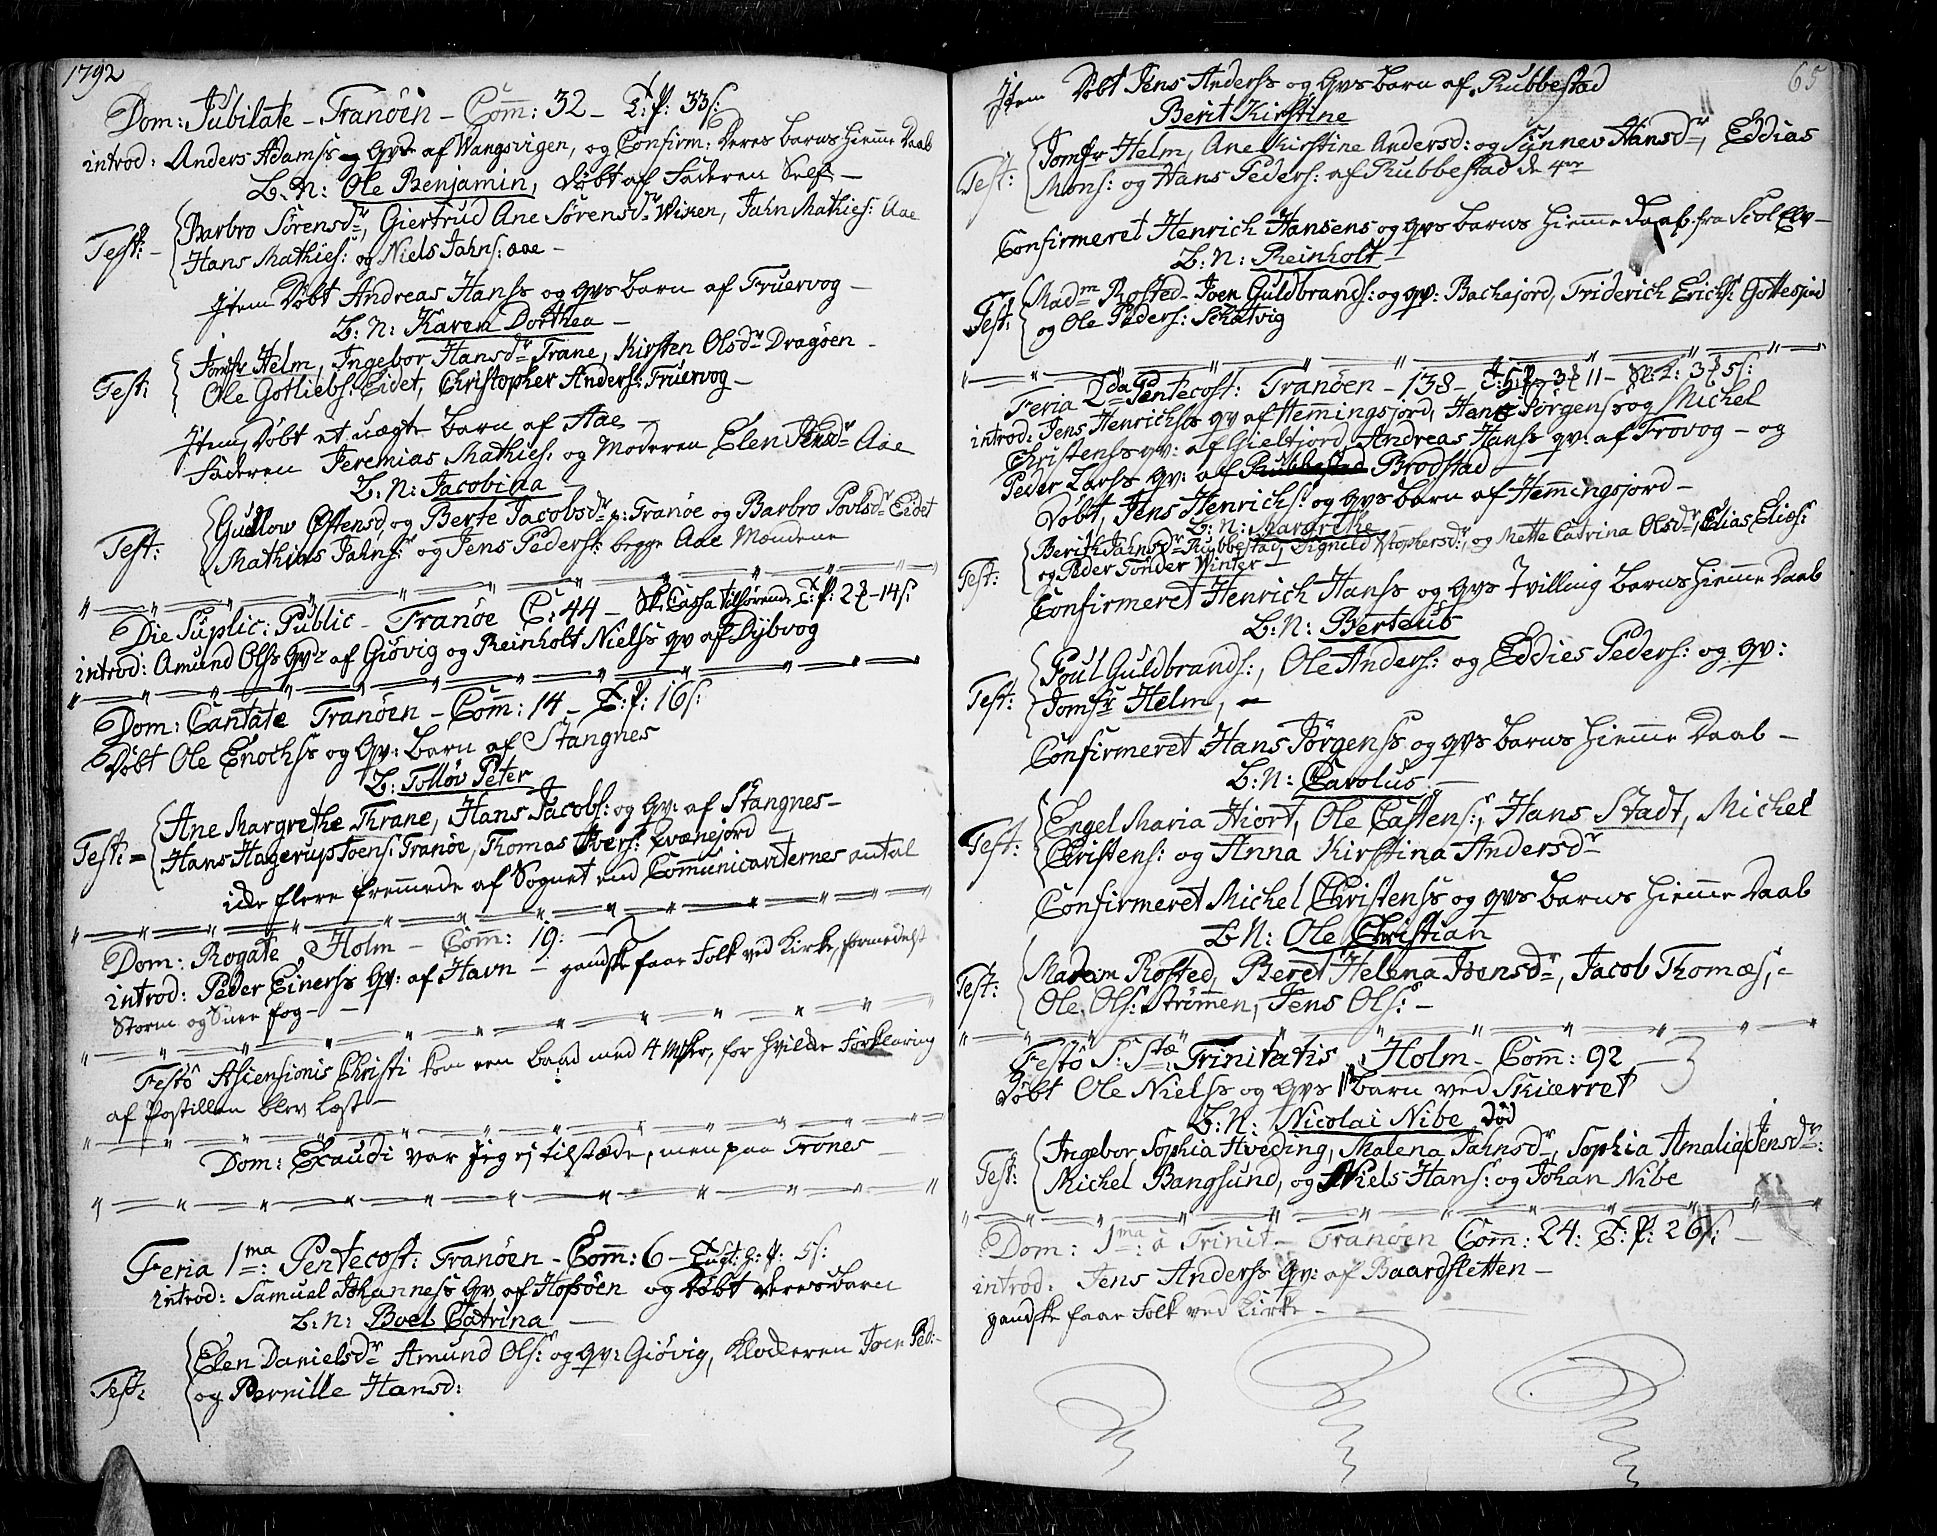 1792
Dom: Jubilate - Tranöen - Com̅: 32 - T: p: 33 s:
introd: Anders Adamss og qvs af Wangsvigen, og Confirm: Deres barns hiem̅e Daab
B. N: Ole Benjamin, Döbt af Faderen Self: -
Test: - Barbro Sörensdr, Giertrud Ane Sörensdr Wiken, Jahn Mathies: Aae
Hans Mathies: og Niels Jahns: aae -
Item Döbt Andreas Hanss og qvs barn af Truervog -
B: N: Karen Dorthea -
Test: Jomfr Helm, Ingebor Hansdr Trane, Kirsten Olsdr Dragöen -
Ole Gotliebs: Eidet, Christopher Anders: Truervog -
Item, Döbt et uægte barn af Aae -
Faderen Jeremias Mathies: og Moderen Elen Jensdr Aae
B: N: Jacobina -
Test: Gunlow Estensd, og Berte Jacobsdr p: Tranöe og Barbro Povlsdr Eidet
Mathias Jahns: og Jens Peders: begge Aae Mændene
Die Suplic: Public - Tranöe C: 44 - Sk: Cassa tilhörende T: p: 2 ℔ - 14 s:
introd: Amund Olss Qvs af Giövig og Reinholt Nielss qv af Dybvog
Dom: Cantate Tranöen - Com̅: 14 - T: p: 16 s:
Döbt Ole Enochss og Qv: barn af Stangnes
B: Tollöv Peter
Test: = Ane Margrethe Thrane, Hans Jacobs: og Qv: af Stangnes -
Hans Hagerup Joens: Tranöe, Thomas Ivers: Qvænejord -
icke flere frem̅ede af Sognet end Com̅unicanternes antal
Dom: Rogate Holm - Com̅: 19: -
introd: Peder Einerss Qv: af Havn - gandske faar Folk ved Kirke, formedelst
Storm og Snee fog - -
Festo Ascensionis Christi kom een baad med 4 Msker, for hvilcke Forklaring
af Postillen blev læst -
Dom: Exaudi var jeg ej tilstæde, men paa Trones -
Feria 1ma: Pentecost: Tranöen - Com̅: 6 - p: 5 s:
introd: Samuel Johanness Qv af Hofsöen og Döbt deres barn
B: N: Boel Catrina -
Test: Elen Danielsdr Amund Ols: og Qv: Giövig, Klockeren Joen Ped: -
og Pernille Hansd:
65
Item Döbt Jens Anderss og Qvs barn af Rubbestad
Berit Kirstine
Test: Jomfr Helm, Ane Kirstine Andersd: og Sünnev Hansdr, Eddias
Mons: og Hans Peders: af Rubbestad de 4re
Confirmeret Henrich Hansens og qvs barns hiem̅e Daab fra Scol Elv -
B: N: Reinholt -
Test: Madm Rosted - Joen Guldbrands: og qv: Bachejord, Friderich Erichs: Gottesjord
og Ole Peders: Skatvig
Feria 2da Pentecost: Tranöen - 138 - T: p: 3 ℔ 11 - Sk: K: 3 ℔ 5 s:
introd: Jens Henrichss qv af Hem̅ingsjord, Hans Jörgens og Michel
Christenss qv: af Gieltjord Andreas Hanss qv: af Trovog - og
Peder Larss Qv: af Brodstad -
Döbt, Jens Henrichs: og Qvs barn af Hem̅ingsjord -
B: N: Margrethe
Test: Berith Jahnsdr Rubbestad, Signild Stophersdr, og Mette Catrina Olsdr, Elias Elies:
og Peder Tönder Winter -
Confirmeret Henrich Hanss og qvs Tvilling barns hiem̅e Daab
B: N: Berteus
Test: Poul Guldbrands:, Ole Anders: og Eddies Peders: og qv:
Jomfr Helm, -
Confirmeret Hans Jörgenss og qvs barns hiem̅e Daab -
B: N: Carolus -
Test: Engel Maria Hiort, Ole Castens:, Hans Stadt, Michel
Christens: og Anna Kirstina Andersdr
Confirmeret Michel Christenss og qvs barns hiem̅e Daab
B: N: Ole Christian
Test: Madam Rosted, Beret Helena Joensdr, Jacob Thomæs:, -
Ole Ols: Strömmen, Jens Ols: -
Festo S: Stæ Trinitatis Holm - Com̅: 92 -
Döbt Ole Nielss og qvs barn ved Skiærret
B: N: Nicolai Nibe död
Test: Ingebor Sophia Hveding, Malena Jahnsdr, Sophia Amalia Jensdr:
Michel Bangsund, og Niels Hans: og Johan Nibe
Dom: 1ma: à Trinit - Tranöen Com̅: 24: T: p: 26 s: -
introd: Jens Anderss Qv: af Baardsletten -
gandske faar Folk ved Kirke -